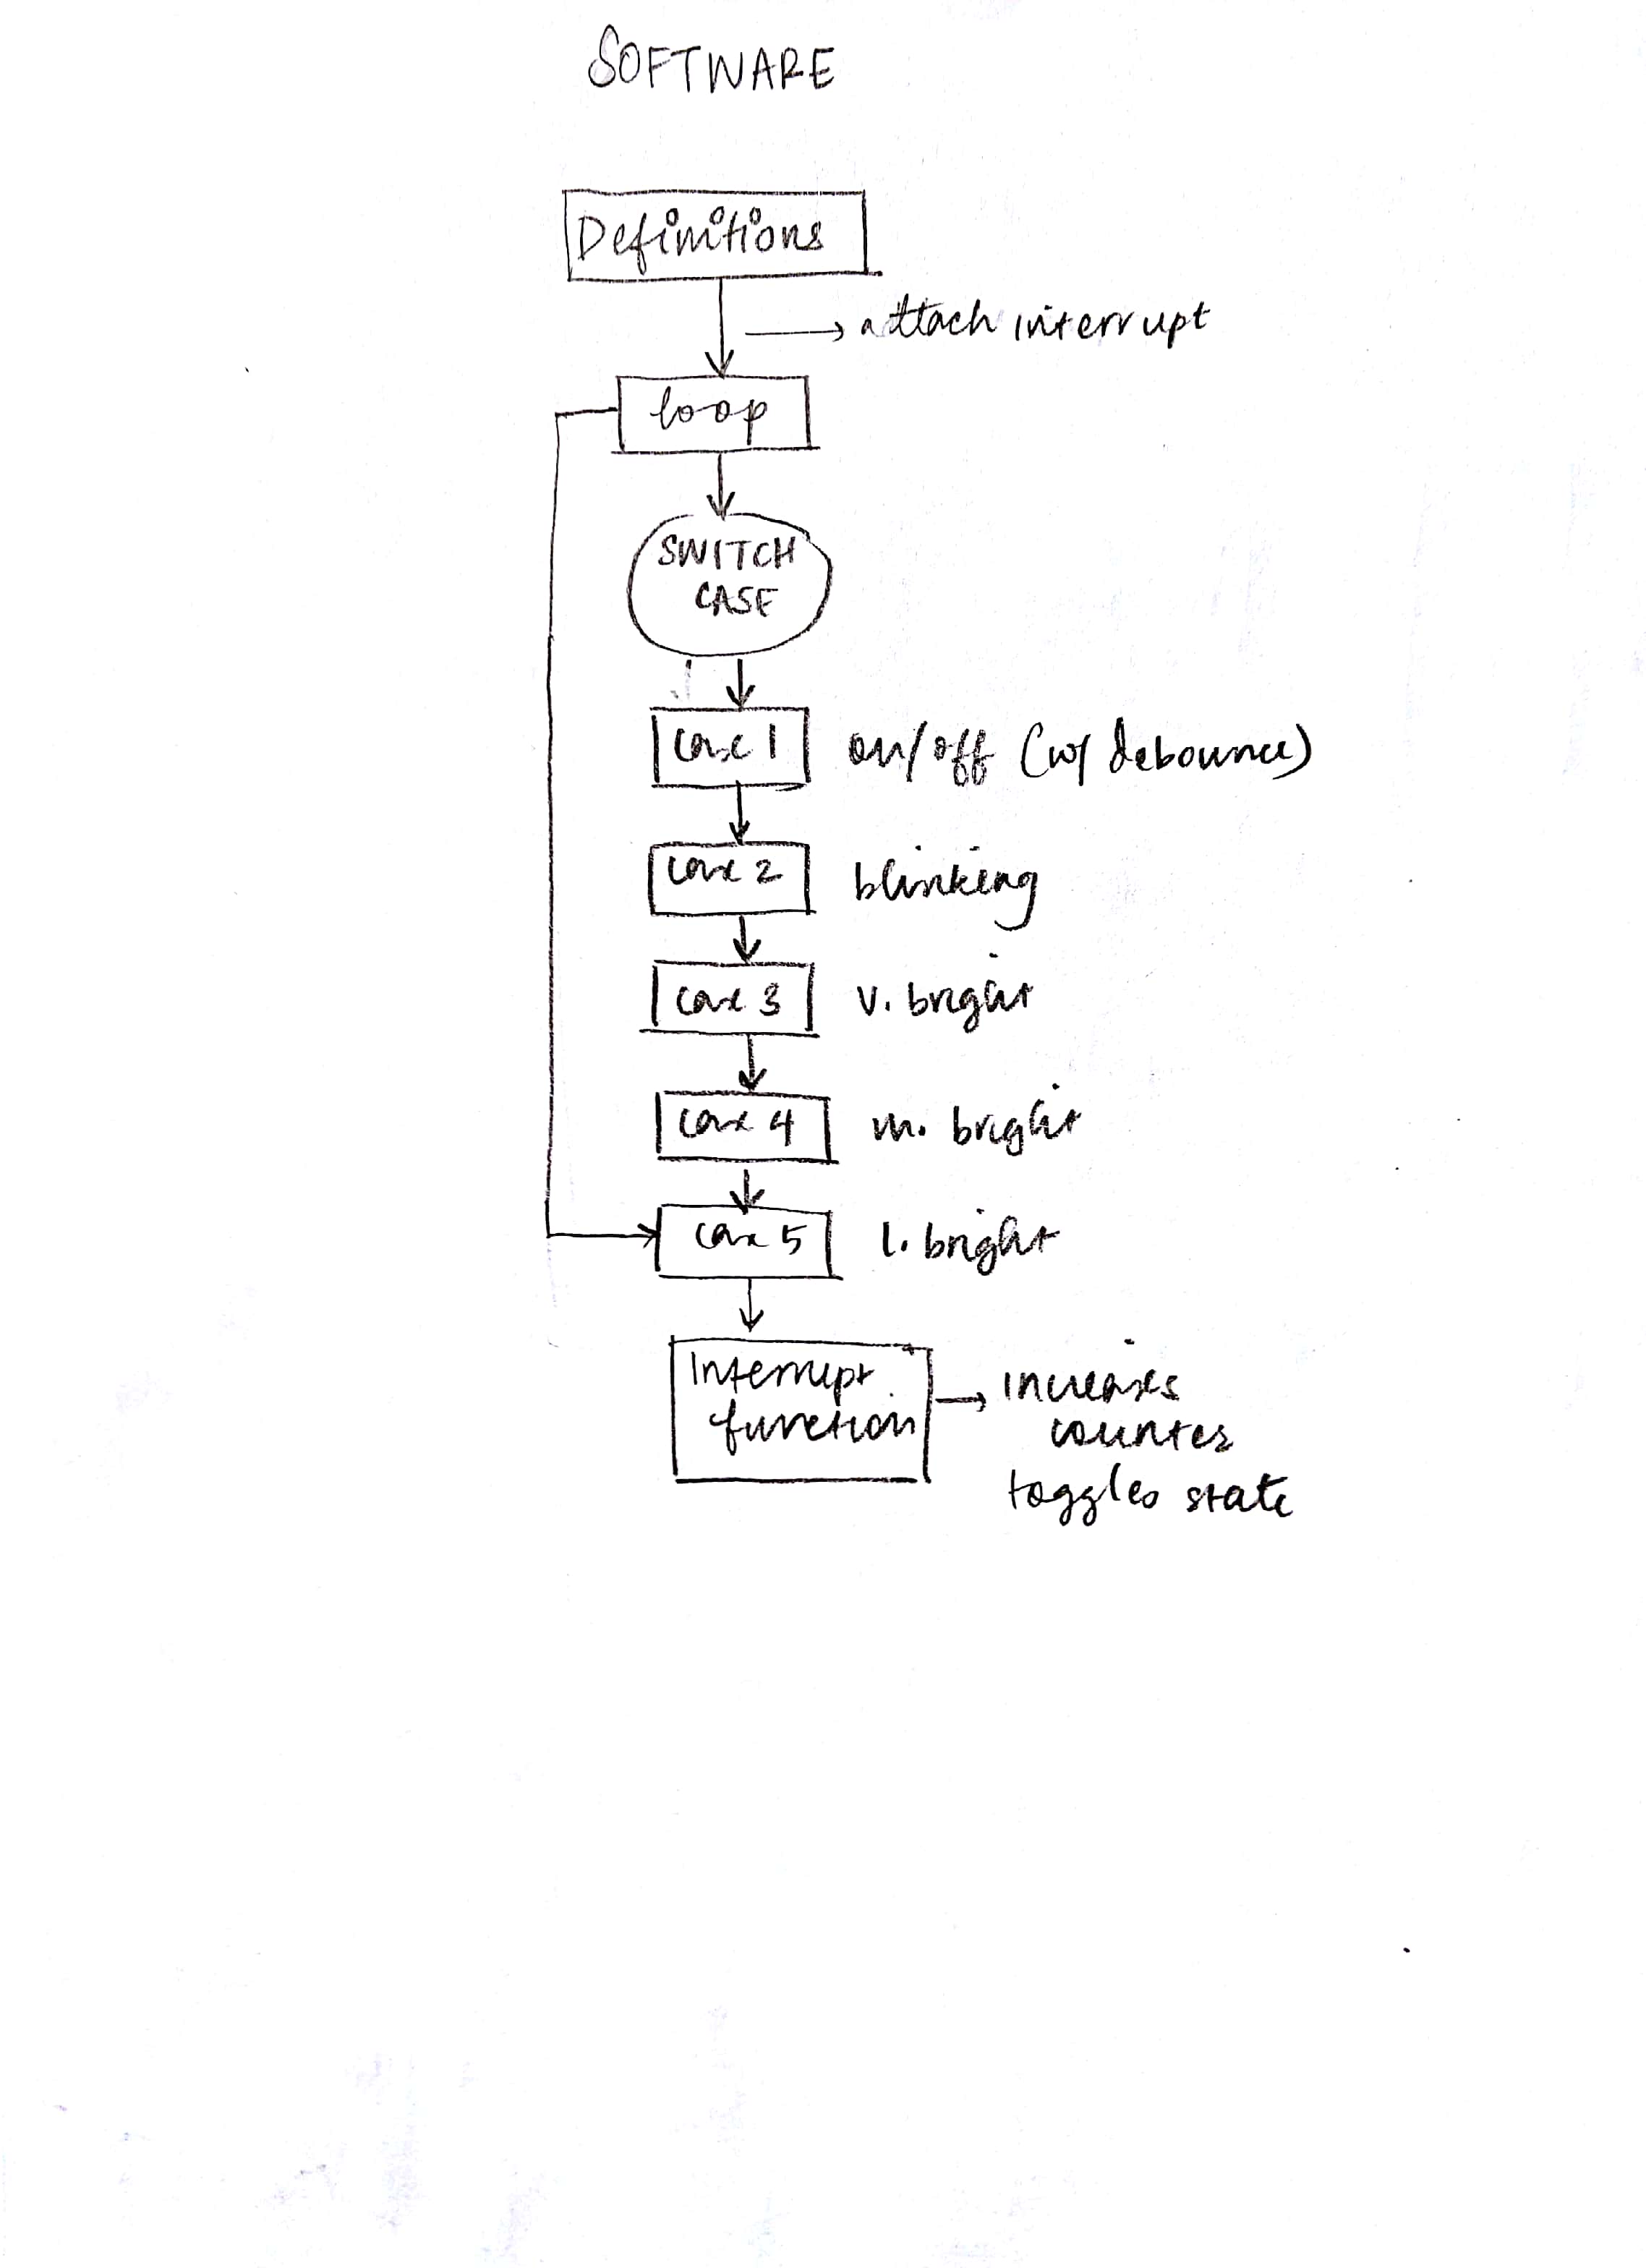 SOFTWARE
Definitions
attach interrupt
loop
SWITCH
CASE
case 1 on/off (w/ debounce)
case 2 blinking
case 3 v. bright
case 4 m. bright
case 5 l. bright
Interrupt
function
increases
counter
toggles state